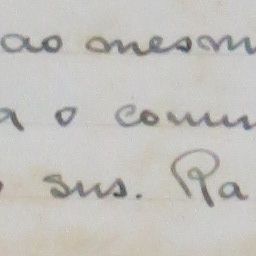 ao mesm
a o comm
sns. Ra